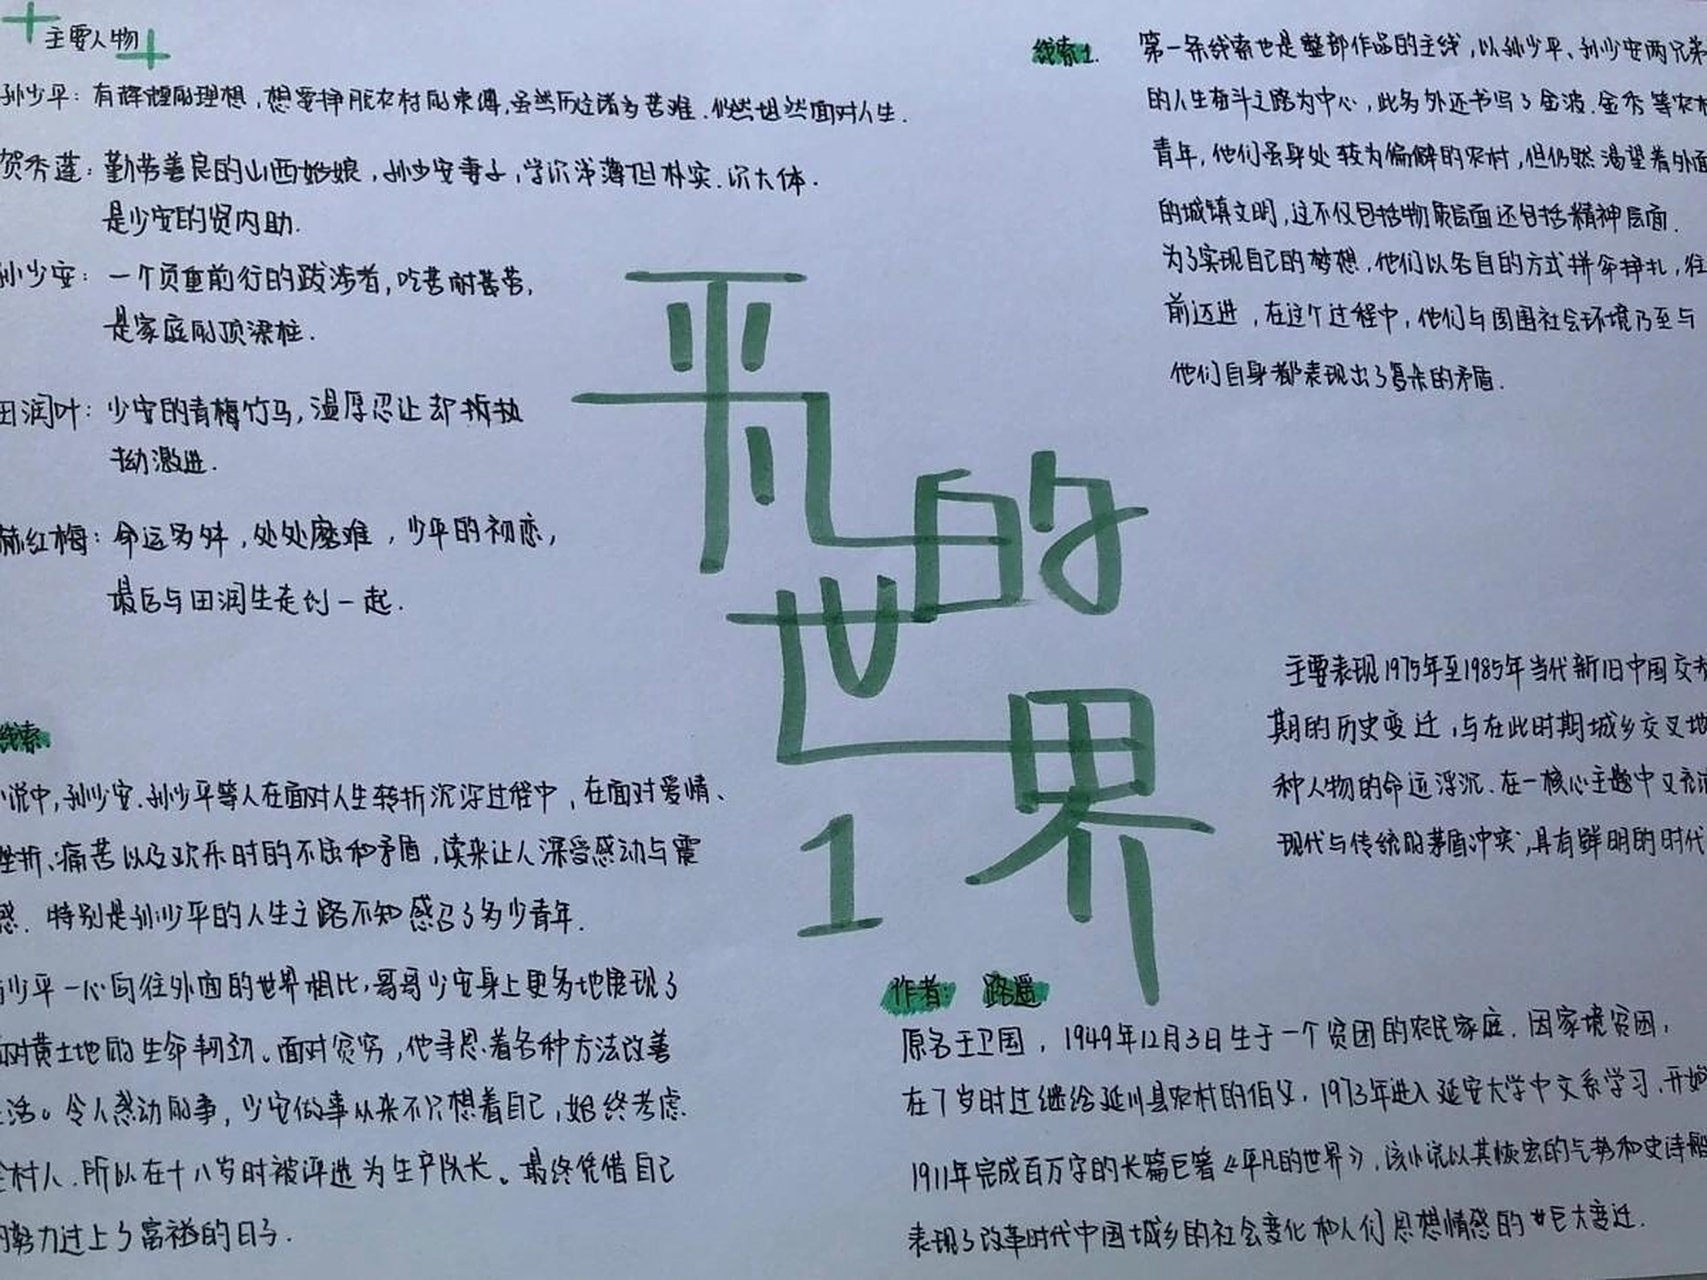 主要人物
孙少平：有辉煌的理想，想要挣脱农村的束缚，虽然历经诸多苦难，仍然坦然面对人生．
贺秀莲：勤劳善良的山西姑娘，孙少安妻子，学识浅薄但朴实．识大体．
是少安的贤内助．
孙少安：一个负重前行的跋涉者，吃苦耐劳，
是家庭的顶梁柱．
田润叶：少安的青梅竹马，温厚忍让却执
拗激进．
郝红梅：命运多舛，处处磨难，少平的初恋，
最后与田润生走到一起．
线索1.
第一条线索也是整部作品的主线，以孙少平、孙少安两兄弟
的人生奋斗之路为中心，此外还书写了金波．金秀等农村
青年，他们虽身处较为偏僻的农村，但仍然渴望着外面
的城镇文明，这不仅包括物质层面还包括精神层面．
为了实现自己的梦想，他们以各自的方式拼命挣扎，往
前迈进，在这个过程中，他们与周围社会环境乃至与
他们自身都表现出了复杂的矛盾．
平凡
的
世
界
1
主要表现1975年至1985年当代新旧中国交替
期的历史变迁，与在此时期城乡交叉地
种人物的命运浮沉．在一核心主题中又充满
现代与传统的茅盾冲突，具有鲜明的时代
线索
小说中，孙少安．孙少平等人在面对人生转折沉浮过程中，在面对爱情、
挫折、痛苦以及欢乐时的不屈和矛盾，读来让人深受感动与震
感．特别是孙少平的人生之路不知感召了多少青年．
与少平一心向往外面的世界相比，哥哥少安身上更多地展现了
面对黄土地的生命韧劲。面对贫穷，他寻思着各种方法改善
生活。令人感动的事，少安做事从来不只想着自己，始终考虑
全村人．所以在十八岁时被评选为生产队长。最终凭借自己
的努力过上了富裕的日子．
作者：路遥
原名王卫国，1949年12月3日生于一个贫困的农民家庭．因家境贫困，
在7岁时过继给延川县农村的伯父，1973年进入延安大学中文系学习，开始
1911年完成百万字的长篇巨著《平凡的世界》，该小说以其恢宏的气势和史诗般
表现了改革时代中国城乡的社会变化和人们思想情感的巨大变迁．